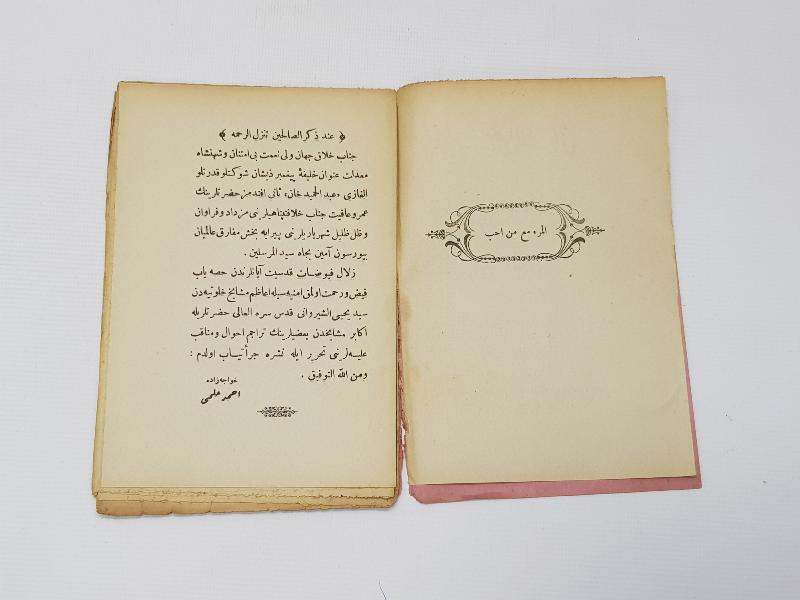 المرء مع من احب
﴿ عند ذكر الصالحين تنزل الرحمه ﴾
جناب خلاق جهان ولی نعمت بی امتنان و شهنشاه
معدلت عنوان خلیفهٔ پیغمبر ذیشان شوکتلو قدرتلو
الغازی «عبد الحمید خان» ثانی افندمز حضرتلرینك
عمر و عافیت جناب خلافتپناهیلرینی مزداد و فراوان
و ظل ظلیل شهریاریلرینی پیرایه بخش مفارق عالمیان
بیورسون آمین بجاه سید المرسلین .
زلال فیوضات قدسیت آیاتلرندن حصه یاب
فیض و رحمت اولمق امنیه سیله اعاظم مشایخ خلوتیه دن
سید یحیی الشیروانی قدس سره العالی حضرتلریله
اکابر مشایخدن بعضیلرینك تراجم احوال و مناقب
علیه لرینی تحریر ایله نشره جرأتیاب اولدم :
ومن الله التوفیق .
خواجه زاده
احمد حلمی